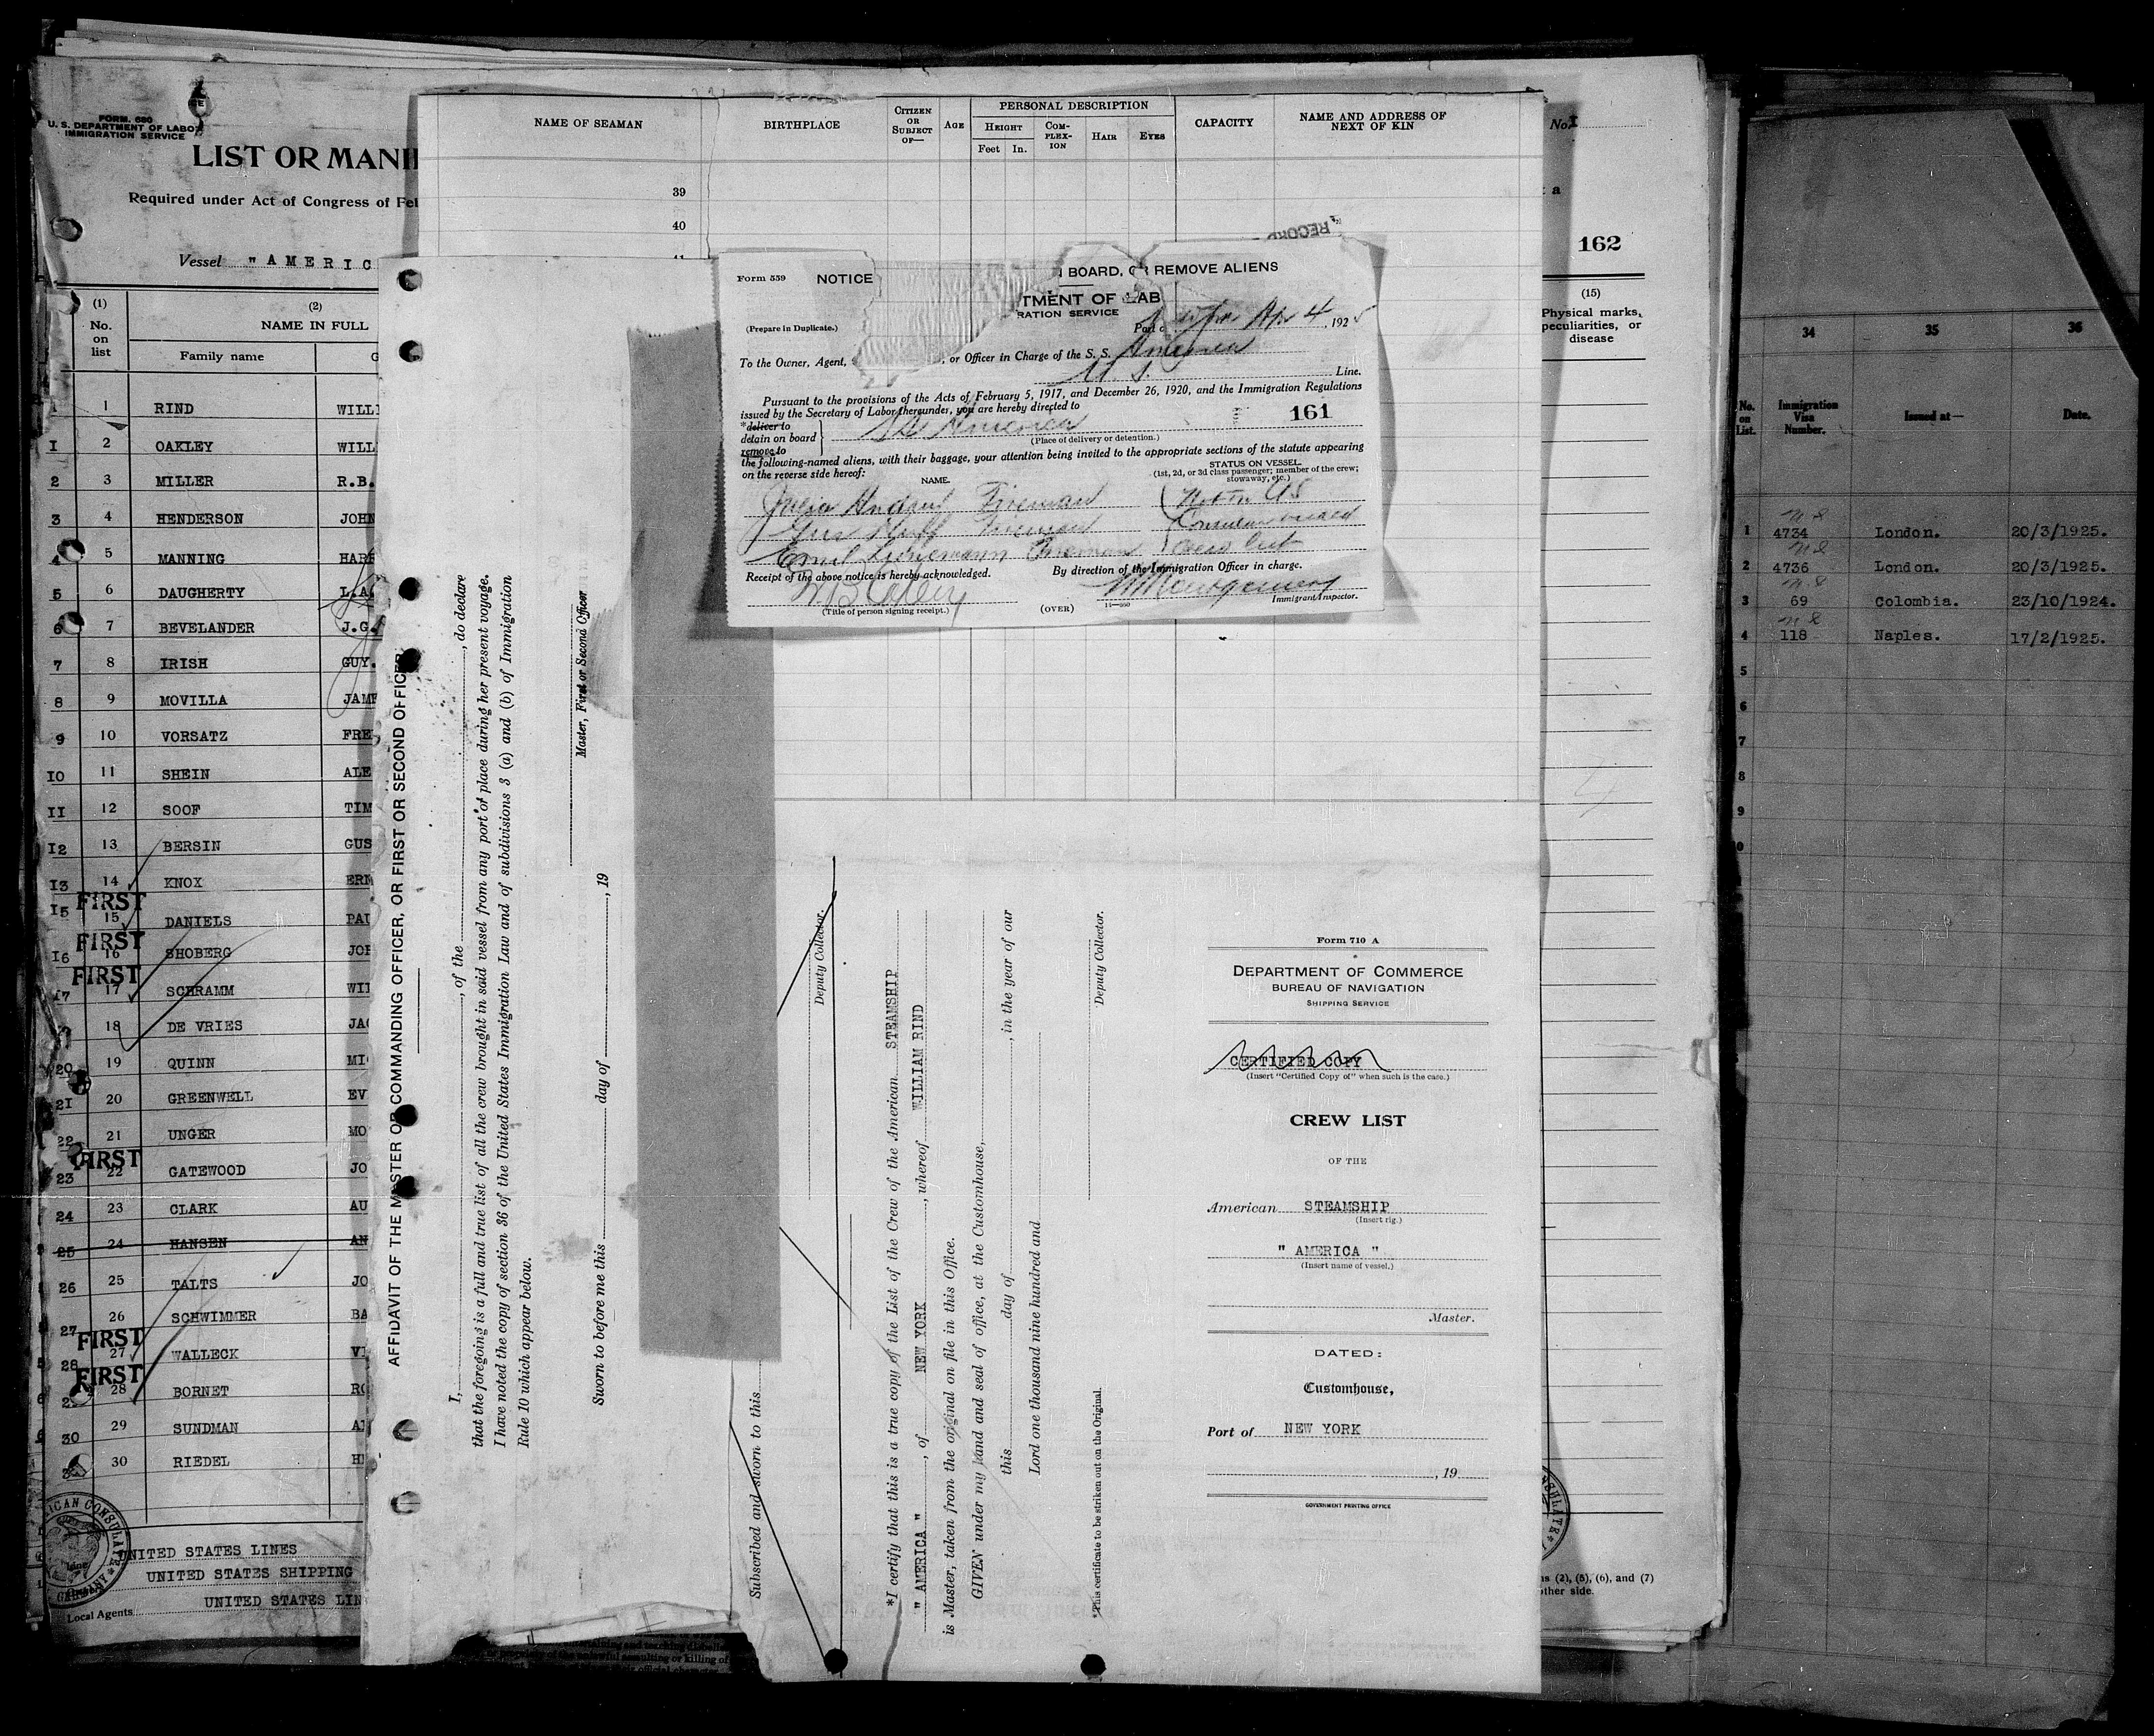 FORM. 680
U. S. DEPARTMENT OF LABOR
IMMIGRATION SERVICE
LIST OR MANI
Required under Act of Congress of Fe
Vessel "AMERIC
(1)
No.
on
list
(2)
NAME IN FULL
Family name
G
1 RIND WILLI
I 2 OAKLEY WILL
2 3 MILLER R.B.
3 4 HENDERSON JOHN
4 5 MANNING HARR
5 6 DAUGHERTY L.A.
6 7 BEVELANDER J.G.
7 8 IRISH GUY.
8 9 MOVILLA JAME
9 10 VORSATZ FRE
IO 11 SHEIN ALE
II 12 SOOF TIM
I2 13 BERSIN GUS
I3 14 KNOX ERN
FIRST
I5 15 DANIELS PAU
FIRST
I6 16 SHOBERG JOH
FIRST
I7 17 SCHRAMM WIL
18 DE VRIES JAC
20 19 QUINN MI
21 20 GREENWELL EV
22 21 UNGER MO
FIRST
23 22 GATEWOOD JO
24 23 CLARK AU
25 24 HANSEN AN
26 25 TALTS JO
27 26 SCHWIMMER BA
FIRST
28 27 WALLECK VI
FIRST
28 BORNET RO
30 29 SUNDMAN
30 RIEDEL
UNITED STATES LINES
UNITED STATES SHIPPING
Local Agents UNITED STATES LIN
NAME OF SEAMAN
BIRTHPLACE
CITIZEN
OR
SUBJECT
OF—
AGE
PERSONAL DESCRIPTION
HEIGHT
Feet In.
COM-
PLEX-
ION
HAIR
EYES
CAPACITY
NAME AND ADDRESS OF
NEXT OF KIN
39
40
41
RECORD
Form 559
NOTICE
N BOARD, OR REMOVE ALIENS
TMENT OF LAB
RATION SERVICE
(Prepare in Duplicate.)
Port o Apr 4, 1925
To the Owner, Agent, , or Officer in Charge of the S. S. America
U. S. Line.
Pursuant to the provisions of the Acts of February 5, 1917, and December 26, 1920, and the Immigration Regulations
issued by the Secretary of Labor thereunder, you are hereby directed to
*deliver to
detain on board
remove to
SS America
161
(Place of delivery or detention.)
the following-named aliens, with their baggage, your attention being invited to the appropriate sections of the statute appearing
on the reverse side hereof:
STATUS ON VESSEL.
(1st, 2d, or 3d class passenger; member of the crew;
stowaway, etc.)
NAME.
Fireman Not on US
Gus Fireman Consular visaed
Emil Fireman crew list
Receipt of the above notice is hereby acknowledged.
By direction of the Immigration Officer in charge.
Montgomery
Immigrant Inspector.
(Title of person signing receipt.)
(OVER)
AFFIDAVIT OF THE MASTER OR COMMANDING OFFICER, OR FIRST OR SECOND OFFICER
I, , of the , do declare
that the foregoing is a full and true list of all the crew brought in said vessel from any port or place during her present voyage.
I have noted the copy of section 36 of the United States Immigration Law and of subdivisions 3 (a) and (b) of Immigration
Rule 10 which appear below.
Master, First or Second Officer
Sworn to before me this day of , 19
Subscribed and sworn to this
Deputy Collector.
*I certify that this is a true copy of the List of the Crew of the American STEAMSHIP
" AMERICA ", of NEW YORK, whereof WILLIAM RIND
is Master, taken from the original on file in this Office.
GIVEN under my hand and seal of office, at the Customhouse,
this day of , in the year of our
Lord one thousand nine hundred and
Deputy Collector.
*This certificate to be striken out on the Original.
Form 710 A
DEPARTMENT OF COMMERCE
BUREAU OF NAVIGATION
SHIPPING SERVICE
CERTIFIED COPY
(Insert "Certified Copy of" when such is the case.)
CREW LIST
OF THE
American STEAMSHIP
(Insert rig.)
" AMERICA "
(Insert name of vessel.)
Master.
DATED:
Customhouse,
Port of NEW YORK
, 19
GOVERNMENT PRINTING OFFICE
No. I
a
162
(15)
Physical marks,
peculiarities, or
disease
ns (2), (5), (6), and (7)
other side.
34 35 36
No.
on
List.
Immigration
Visa
Number.
Issued at—
Date.
1 4734 London. 20/3/1925.
2 4736 London. 20/3/1925.
3 69 Colombia. 23/10/1924.
4 118 Naples. 17/2/1925.
5
6
7
8
9